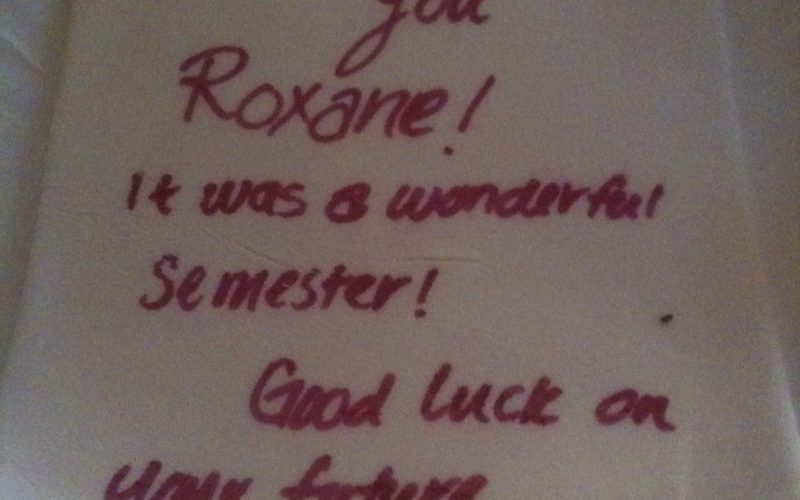 you
Roxane!
It was a wonderful
Semester!
Good luck on
your